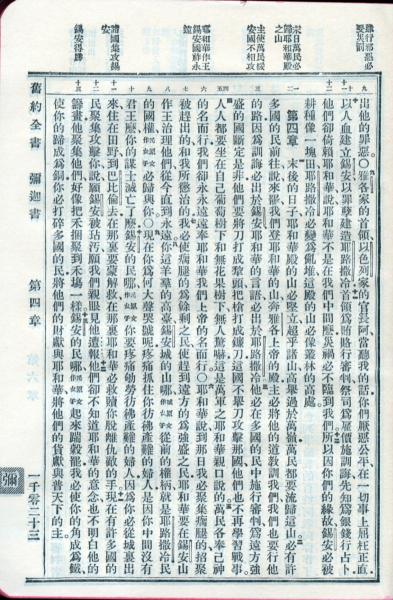 雖行邪惡必
要災罰
末日萬民必
歸耶和華殿
之山
主使萬民綏
安國不相攻
耶和華作王
錫安國永
遠
諸國集攻錫
安
錫安得勝
出他的罪惡○雅各家的首領以色列家的官長阿當聽我的話你們厭惡公平在一切事上屈枉正直
以人血建立錫安以罪孽建造耶路撒冷首領爲賄賂行審判祭司爲雇價施訓誨先知爲銀錢行占卜
他們卻倚賴耶和華說耶和華不是在我們中間麽災禍必不臨到我們所以因你們的緣故錫安必被
耕種像一塊田耶路撒冷必變爲亂堆這殿的山必像叢林的高處
第四章 末後的日子耶和華殿的山必堅立超乎諸山高舉過於萬嶺萬民都要流歸這山必有許
多國的民前往說來罷我們登耶和華的山奔雅各上帝的殿主必將他的道教訓我們我們也要行他
的路因爲訓誨必出於錫安耶和華的言語必出於耶路撒冷他必在多國的民中施行審判爲遠方強
盛的國斷定是非他們要將刀打成犂頭把槍打成鐮刀這國不舉刀攻擊那國他們也不再學習戰事
人人都要坐在自己葡萄樹下和無花果樹下無人驚嚇這是萬軍之耶和華親口說的萬民各奉己神
的名而行我們卻永永遠遠奉耶和華我們上帝的名而行○耶和華說到那日我必聚集瘸腿的招聚
被趕出的和我所懲治的我必使瘸腿的爲餘剩之民使趕到遠方的爲強盛之民耶和華要在錫安山
作王治理他們從今直到永遠你這羊羣的高臺錫安城的山哪從前的權柄就是耶路撒冷民
的國權必歸與你○現在你爲何大聲哭號呢疼痛抓住你彷彿產難的婦人是因你中間沒有
君王麽你的謀士滅亡了麽錫安的民哪你要疼痛劬勞彷彿產難的婦人因爲你必從城裏出
來住在田野到巴比倫去在那裏要蒙解救在那裏耶和華必救贖你脫離仇敵的手現在有許多國的
民聚集攻擊你說願錫安被玷汚願我們親眼見他遭報他們卻不知道耶和華的意念也不明白他的
籌畫他聚集他們好像把禾捆聚到禾場一樣錫安的民哪起來踹穀罷我必使你的角成爲鐵
使你的蹄成爲銅你必打碎多國的民將他們的財獻與耶和華將他們的貨獻與普天下的主。
舊約全書 彌迦書 第四章 一千零二十三
彌